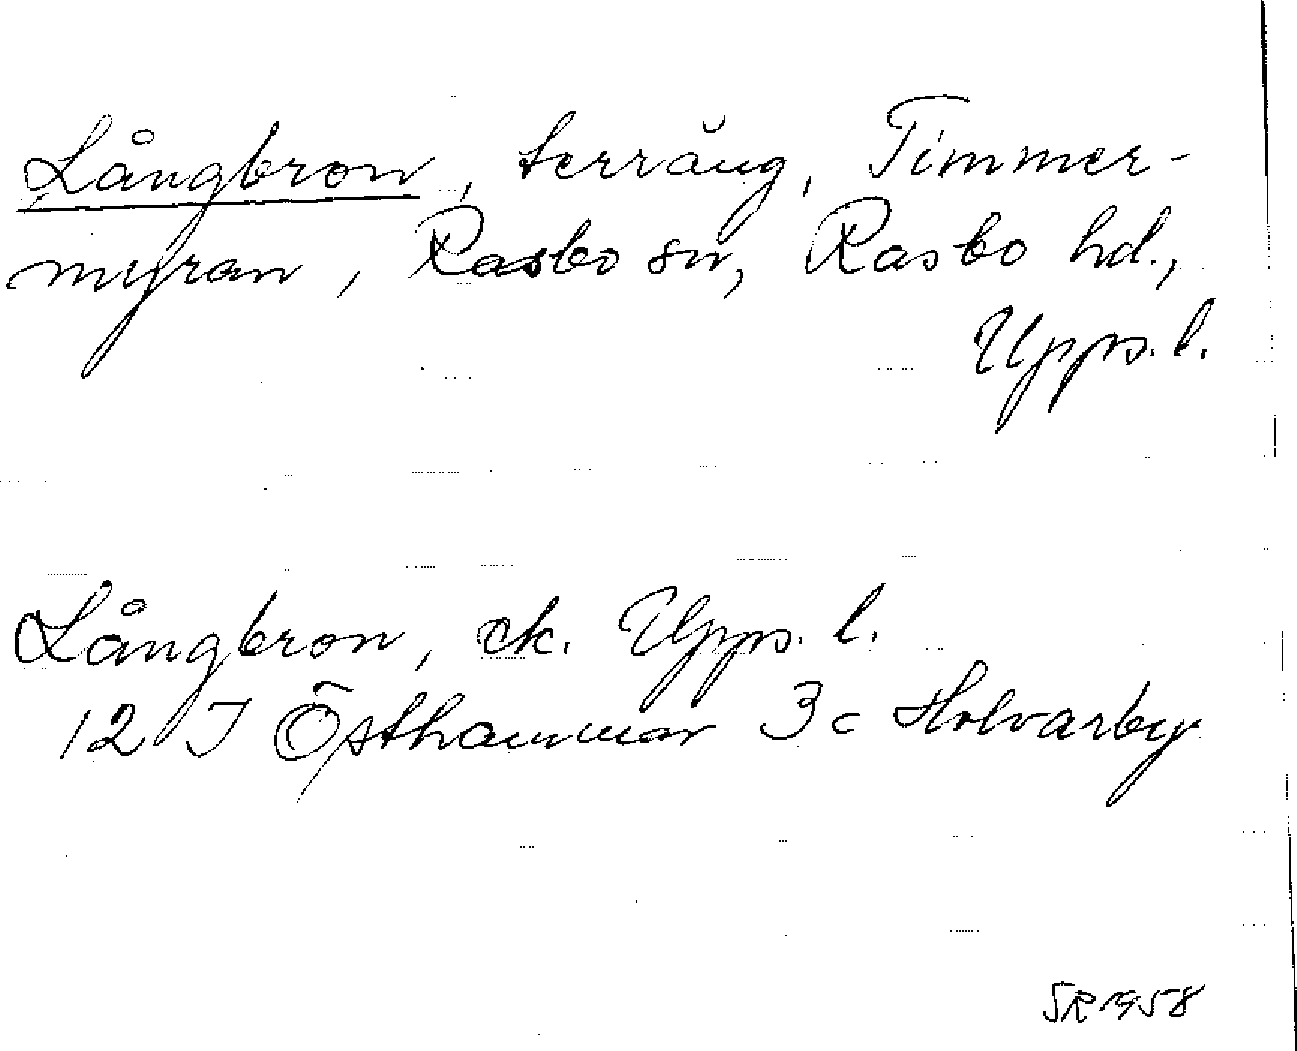 Långbron, terräng, Timmer-
myran, Rasbo sn, Rasbo hd.,
Upps. l.
Långbron, ek. Upps. l.
12 I Östhammar 3c Holvarby
SR 1958